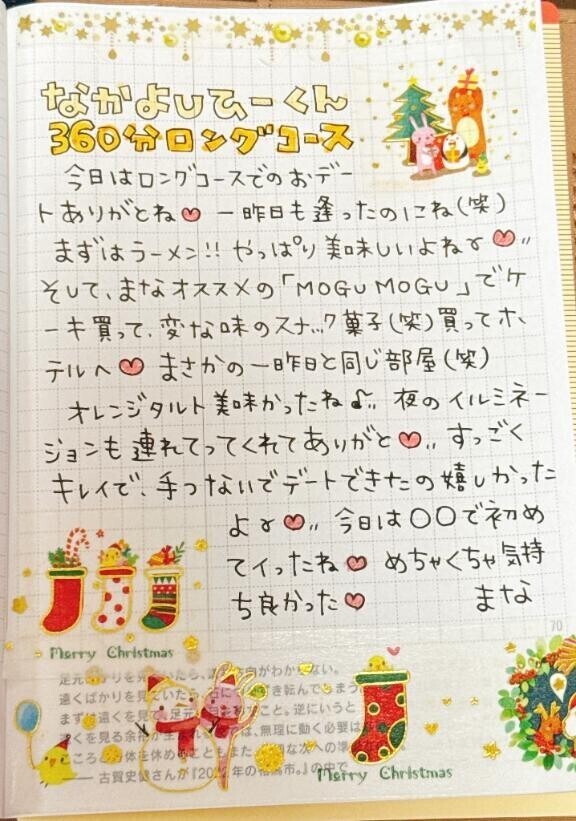 なかよしひーくん
360分ロングコース
今日はロングコースでのおデー
トありがとね♥ 一昨日も逢ったのにね(笑)
まずはラーメン!! やっぱり美味しいよねɤ♥〃
そして、まなオススメの「MOGU MOGU」でケ
ーキ買って、変な味のスナック菓子(笑)買ってホ
テルへ♥ まさかの一昨日と同じ部屋(笑)
オレンジタルト美味かったね♪〃 夜のイルミネー
ションも連れてってくれてありがと♥〃 すっごく
キレイで、手つないでデートできたの嬉しかった
よɤ♥〃 今日は〇〇で初め
てイったね♥ めちゃくちゃ気持
ち良かった♥ まな
70
Merry Christmas
足元
遠くばかりを見ていたら、
まず
こころ
── 古賀史健さんが『20
Merry Christmas